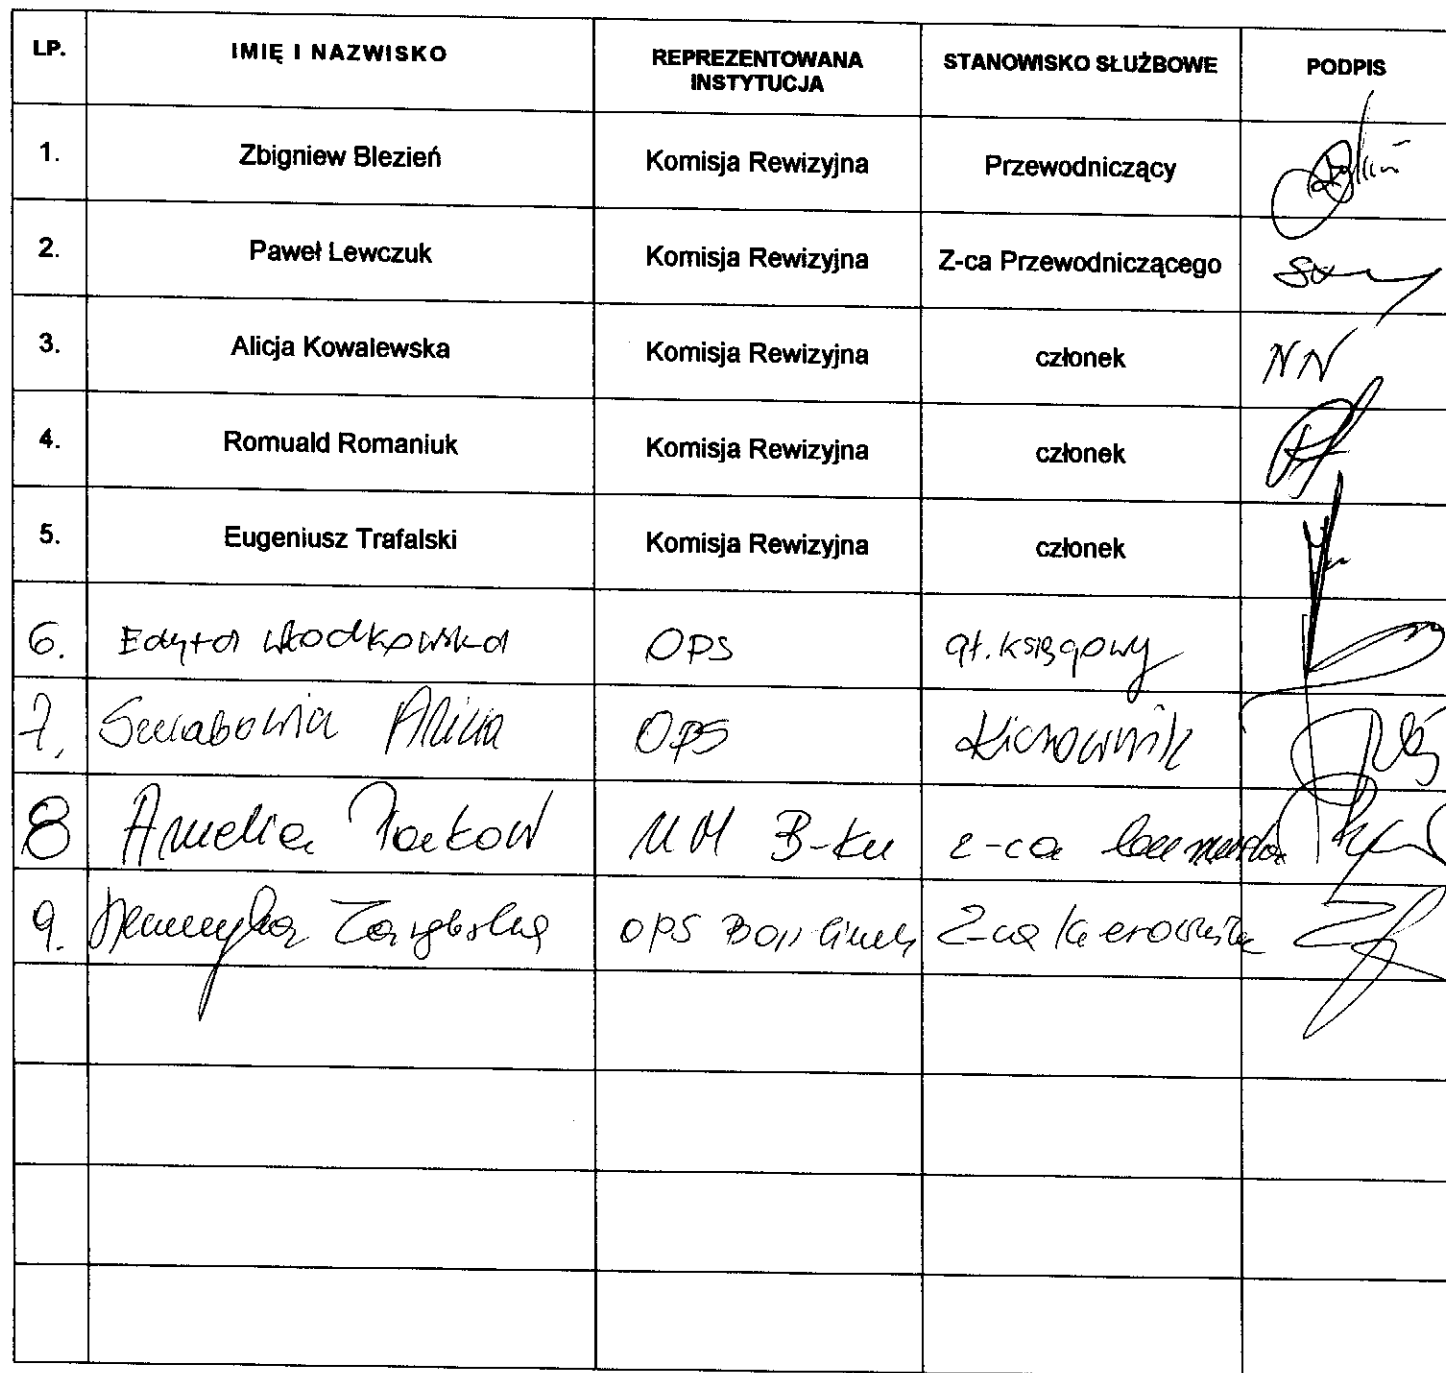 LP. IMIĘ I NAZWISKO REPREZENTOWANA INSTYTUCJA STANOWISKO SŁUŻBOWE PODPIS
1. Zbigniew Blezień Komisja Rewizyjna Przewodniczący
2. Paweł Lewczuk Komisja Rewizyjna Z-ca Przewodniczącego
3. Alicja Kowalewska Komisja Rewizyjna członek NN
4. Romuald Romaniuk Komisja Rewizyjna członek
5. Eugeniusz Trafalski Komisja Rewizyjna członek
6. Edyta Włodkowska OPS gł. księgowy
7. Alicja OPS Kierownik
8 Amelia UM B-ku z-ca
9. OPS Z-ca Kierownika